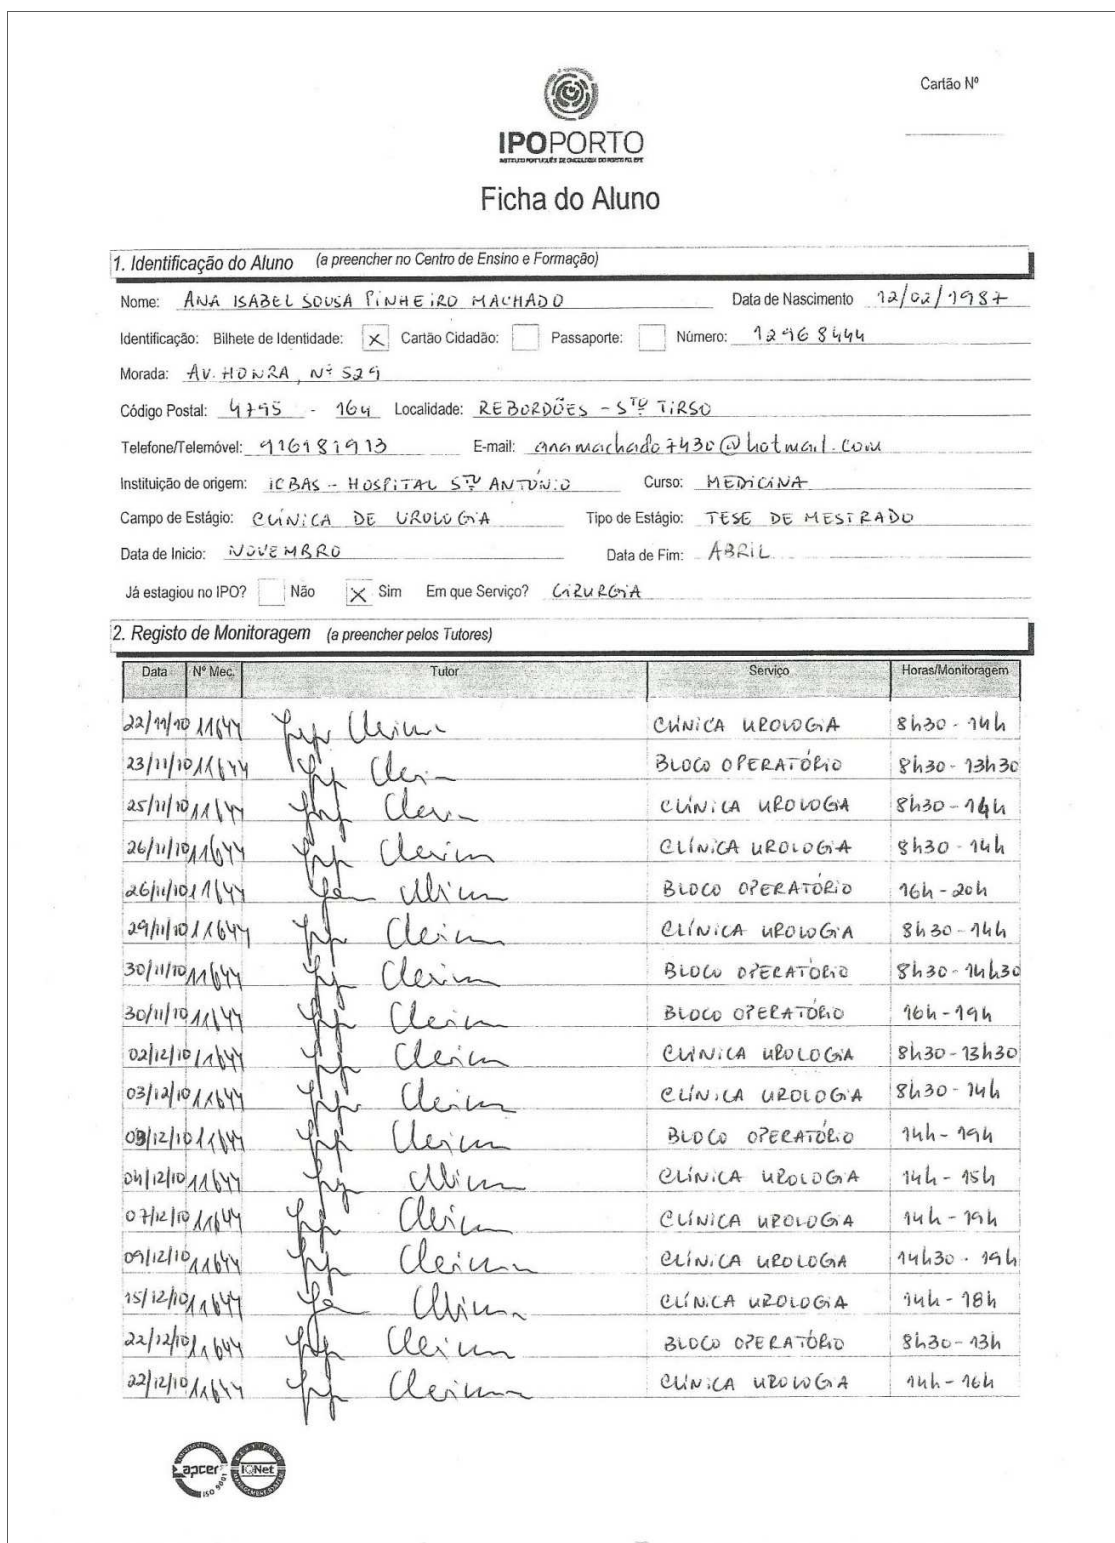 Cartão Nº
IPOPORTO
INSTITUTO PORTUGUÊS DE ONCOLOGIA DO PORTO FG, EPE
Ficha do Aluno
1. Identificação do Aluno (a preencher no Centro de Ensino e Formação)
Nome: ANA ISABEL SOUSA PINHEIRO MACHADO Data de Nascimento 12/02/1987
Identificação: Bilhete de Identidade: X Cartão Cidadão: Passaporte: Número: 12968444
Morada: AV. HONRA, Nº 529
Código Postal: 4795 - 164 Localidade: REBORDÕES - STO TIRSO
Telefone/Telemóvel: 916181913 E-mail: anamachado7430@hotmail.com
Instituição de origem: ICBAS - HOSPITAL STO ANTÓNIO Curso: MEDICINA
Campo de Estágio: CLÍNICA DE UROLOGIA Tipo de Estágio: TESE DE MESTRADO
Data de Inicio: NOVEMBRO Data de Fim: ABRIL
Já estagiou no IPO? Não X Sim Em que Serviço? CIRURGIA
2. Registo de Monitoragem (a preencher pelos Tutores)
Data Nº Mec. Tutor Serviço Horas/Monitoragem
22/11/10 11644 CLÍNICA UROLOGIA 8h30 - 14h
23/11/10 11644 BLOCO OPERATÓRIO 8h30 - 13h30
25/11/10 11644 CLÍNICA UROLOGIA 8h30 - 14h
26/11/10 11644 CLÍNICA UROLOGIA 8h30 - 14h
26/11/10 11644 BLOCO OPERATÓRIO 16h - 20h
29/11/10 11644 CLÍNICA UROLOGIA 8h30 - 14h
30/11/10 11644 BLOCO OPERATÓRIO 8h30 - 14h30
30/11/10 11644 BLOCO OPERATÓRIO 16h - 19h
02/12/10 11644 CLÍNICA UROLOGIA 8h30 - 13h30
03/12/10 11644 CLÍNICA UROLOGIA 8h30 - 14h
03/12/10 11644 BLOCO OPERATÓRIO 14h - 19h
04/12/10 11644 CLÍNICA UROLOGIA 14h - 15h
07/12/10 11644 CLÍNICA UROLOGIA 14h - 19h
09/12/10 11644 CLÍNICA UROLOGIA 14h30 - 19h
15/12/10 11644 CLÍNICA UROLOGIA 14h - 18h
22/12/10 11644 BLOCO OPERATÓRIO 8h30 - 13h
22/12/10 11644 CLÍNICA UROLOGIA 14h - 16h
apcer IQNet
ISO 9001